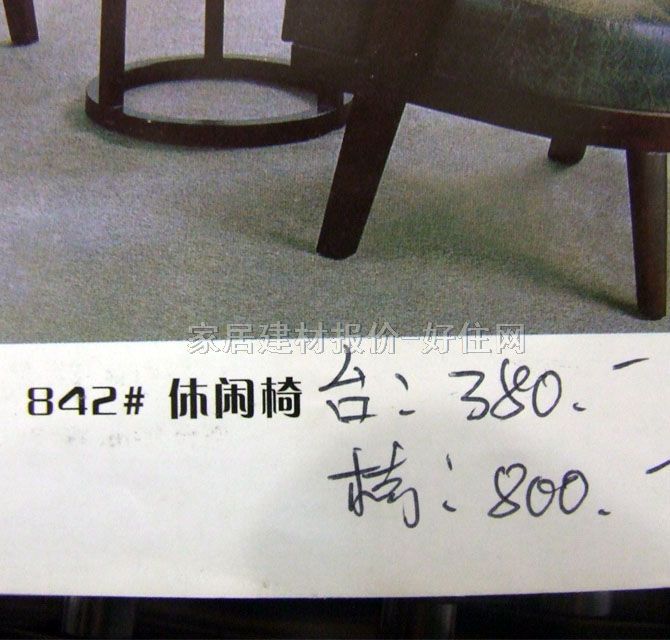 家居建材报价-好住网
842# 休闲椅 台：380.-
椅：800.-